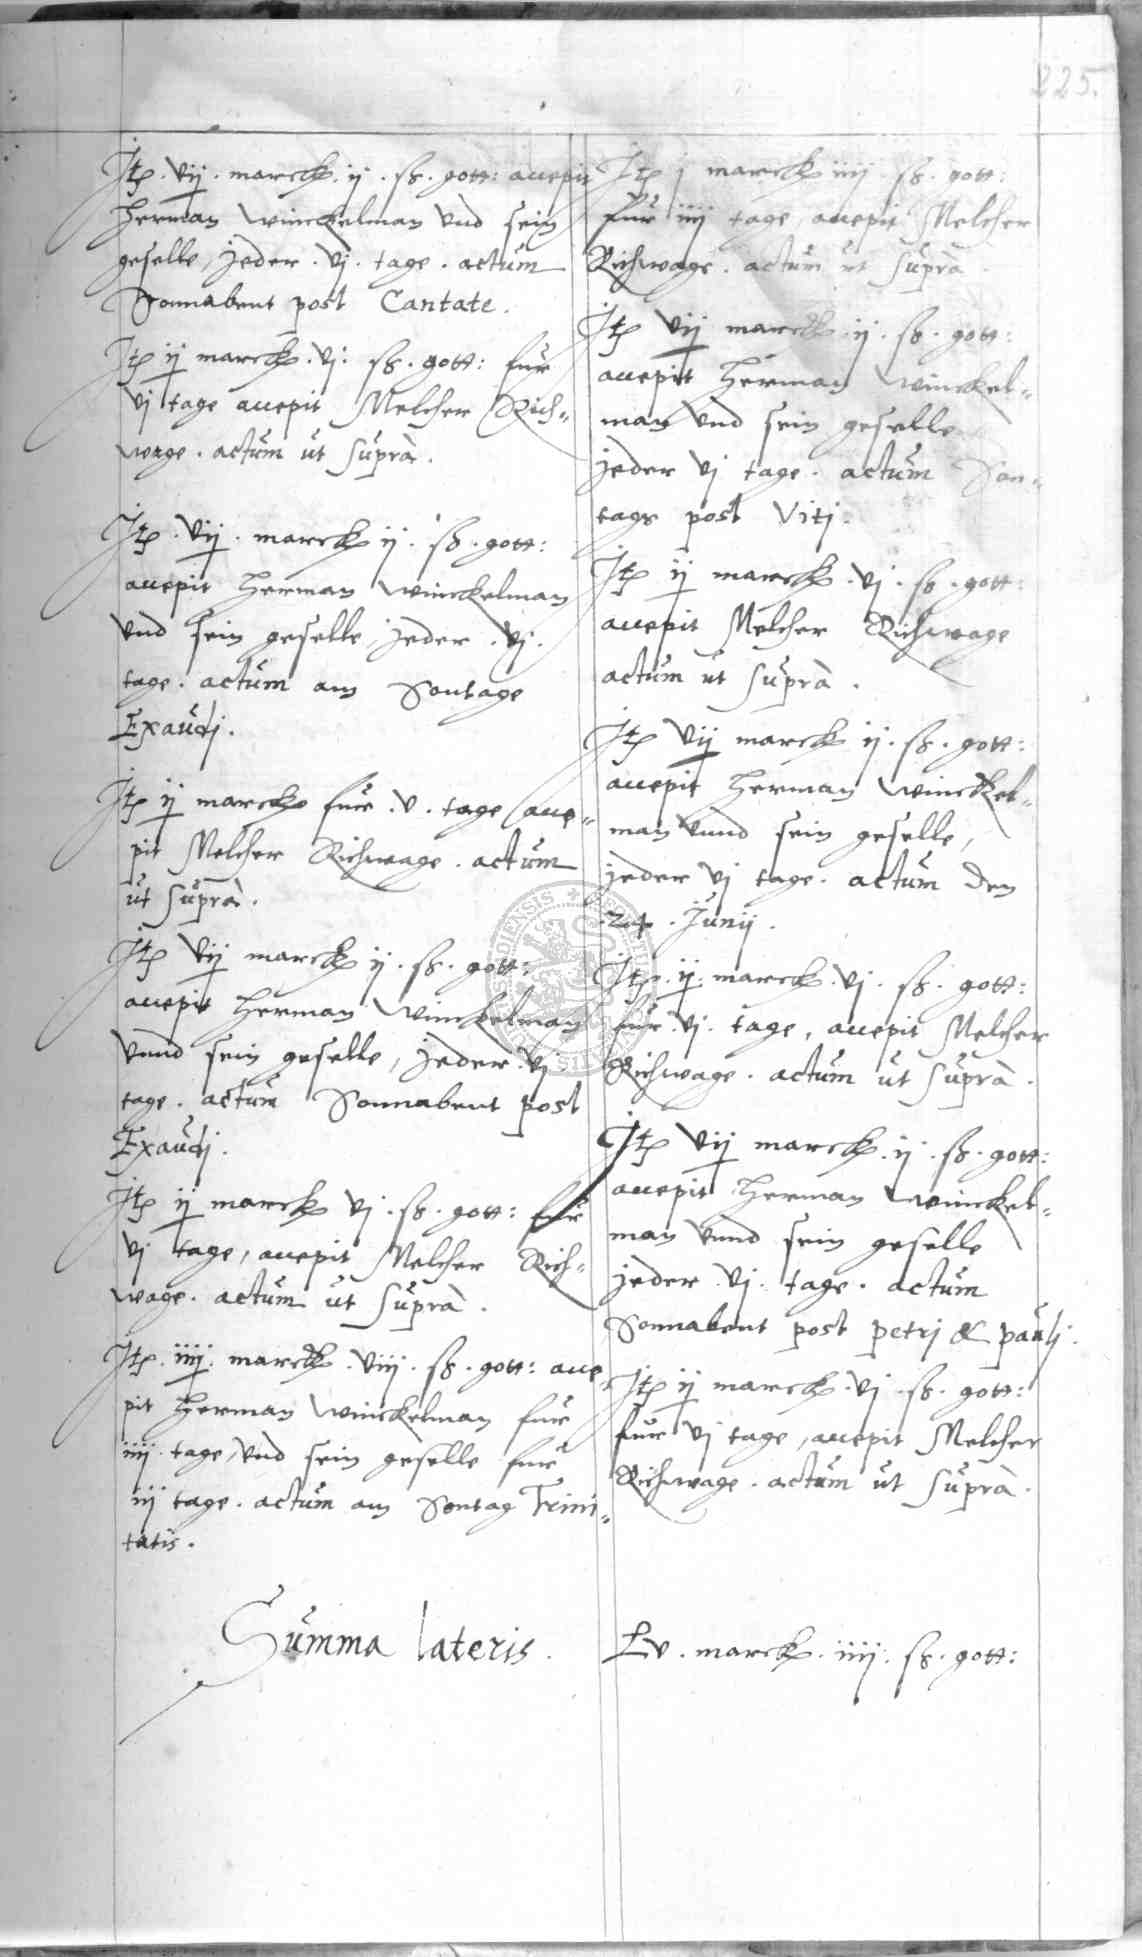 225.
Itꝫ . vij . marckꝫ . ij . ß . gott: accepit
Herman Winckelman vnd sein
geselle, jeder . vj . tage . actum
Sonnabent post Cantate .
Itꝫ ij marckꝫ . vj . ß . gott: fur
vj tage accepit Melcher Rich=
wage . actum ut supra .
Itꝫ . vij . marckꝫ ij . ß . gott:
accepit Herman Winckelman
vnd sein geselle, jeder . vj .
tage . actum am Sontage
Exaudj .
Itꝫ ij marckꝫ fur . v . tage acce=
pit Melcher Richwage . actum
ut supra .
Itꝫ vij marckꝫ ij . ß . gott:
accepit Herman Winckelman
vnnd sein geselle, jeder . vj
tage . actum Sonnabent post
Exaudj .
Itꝫ ij marckꝫ vj . ß . gott: fur
vj tage, accepit Melcher Rich=
wage . actum ut supra .
Itꝫ . iiij . marckꝫ . viij . ß . gott: acce
pit Herman Winckelman fur
iiij tage, vnd sein geselle fur
iij tage . actum am Sontag Trini=
tatis .
Itꝫ j marckꝫ iiij . ß . gott:
fur iiij tage, accepit Melcher
Richwage . actum ut supra .
Itꝫ vij marckꝫ . ij . ß . gott:
accepit Herman Winckel=
man vnd sein geselle
jeder vj tage . actum Son=
tags post Vitj .
Itꝫ ij marckꝫ . vj . ß . gott:
accepit Melcher Richwage
actum ut supra .
Itꝫ vij marckꝫ ij . ß . gott:
accepit Herman Winckel=
man vnnd sein geselle,
jeder vj tage . actum den
24 . Junij .
Itꝫ . ij . marckꝫ . vj . ß . gott:
fur . vj . tage, accepit Melcher
Richwage . actum ut supra .
Itꝫ vij marckꝫ . ij . ß . gott:
accepit Herman Winckel=
man vnnd sein geselle
jeder . vj . tage . actum
Sonnabent post petrj & paulj .
Itꝫ ij marckꝫ . vj . ß . gott:
fur vj tage, accepit Melcher
Richwage . actum ut supra .
Summa lateris . Lv . marckꝫ . iiij . ß . gott: